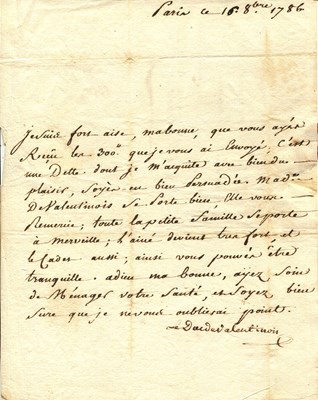 Paris ce 16 8bre 1786
Je suis fort aise, ma bonne, que vous ayés
Reçue les 300# que je vous ai Envoyé; C'est
une Dette dont je m'aquite avec bien du
plaisir, Soyés en bien persuadée. Made
De Valentinois se Porte bien, Elle vous
Remercie; toute la petite famille se porte
à Merveille; l'ainé devient tres fort, et
le Cadet aussi; ainsi vous pouvés être
tranquille. adieu ma bonne, ayez Soin
de Ménager votre Santé, et Soyez bien
Sure que je ne vous oublierai point.
Le Duc de Valentinois